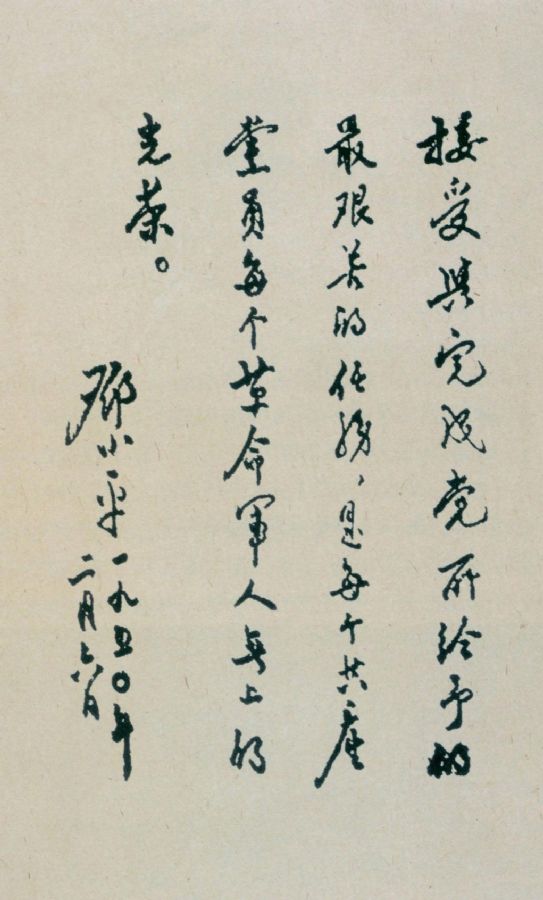 接受与完成党所给予的
最艰苦的任务，是每个共产
党员每个革命军人无上的
光荣。
邓小平一九五〇年
二月六日